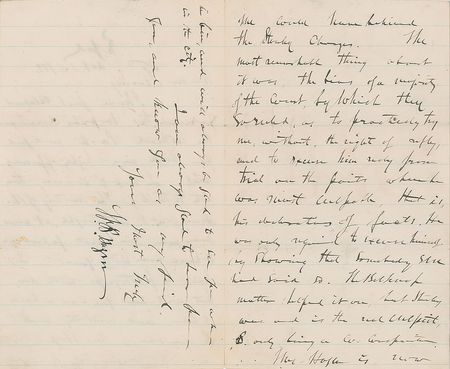 we could have behind
the Stanley Charges. The
most remarkable thing about
it was, the bias of a majority
of the Court, by which they
so ruled, as to
me, without, the right of reply,
and to excuse him only from
trial on the points where he
was most culpable, that is,
his declarations of facts. He
was only required to excuse himself
by showing that somebody else
had said so. The Belknap
matter helped it on, but Stanley
was and is the real culprit,
B. only being a Co. conspirator.
Mrs Hazen is now
and will always be glad to see you when
in the city.
I am always glad to hear from
you, and know you as my friend
Yours Most Truly
W B Hazen